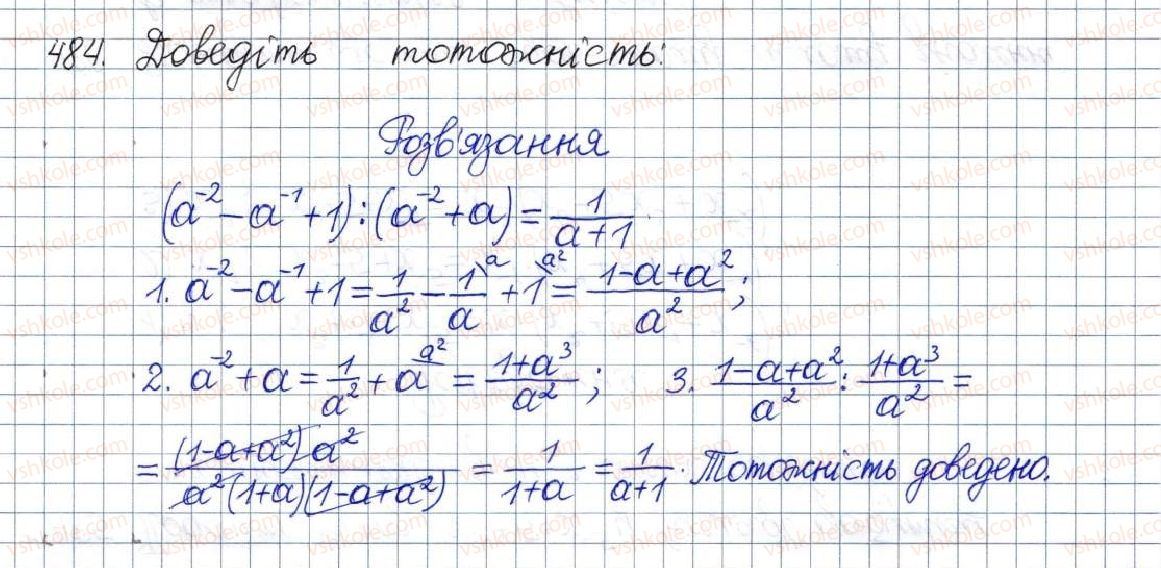 484. Доведіть тотожність:
Розв'язання
(a⁻² − a⁻¹ + 1) : (a⁻² + a) = 1/(a+1)
1. a⁻² − a⁻¹ + 1 = 1/a² − 1/a \a + 1 \a² = (1−a+a²)/a² ;
2. a⁻² + a = 1/a² + a \a² = (1+a³)/a² ; 3. (1−a+a²)/a² : (1+a³)/a² =
= (1−a+a²) a² / a² (1+a)(1−a+a²) = 1/(1+a) = 1/(a+1). Тотожність доведено.